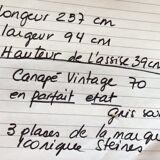 longeur 237 cm
largeur 94 cm
Hauteur de l'assise 39cm
Canapé Vintage 70
en parfait etat
Gris sou
3 places de la marque
iconique Steiner